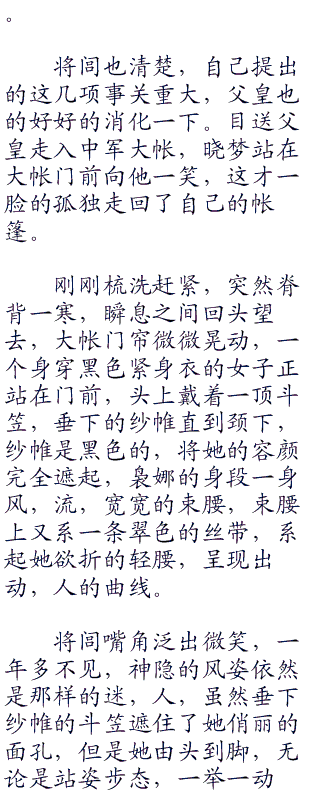 。
将闾也清楚，自己提出
的这几项事关重大，父皇也
的好好的消化一下。目送父
皇走入中军大帐，晓梦站在
大帐门前向他一笑，这才一
脸的孤独走回了自己的帐
篷。
刚刚梳洗赶紧，突然脊
背一寒，瞬息之间回头望
去，大帐门帘微微晃动，一
个身穿黑色紧身衣的女子正
站在门前，头上戴着一顶斗
笠，垂下的纱帷直到颈下，
纱帷是黑色的，将她的容颜
完全遮起，袅娜的身段一身
风，流，宽宽的束腰，束腰
上又系一条翠色的丝带，系
起她欲折的轻腰，呈现出
动，人的曲线。
将闾嘴角泛出微笑，一
年多不见，神隐的风姿依然
是那样的迷，人，虽然垂下
纱帷的斗笠遮住了她俏丽的
面孔，但是她由头到脚，无
论是站姿步态，一举一动